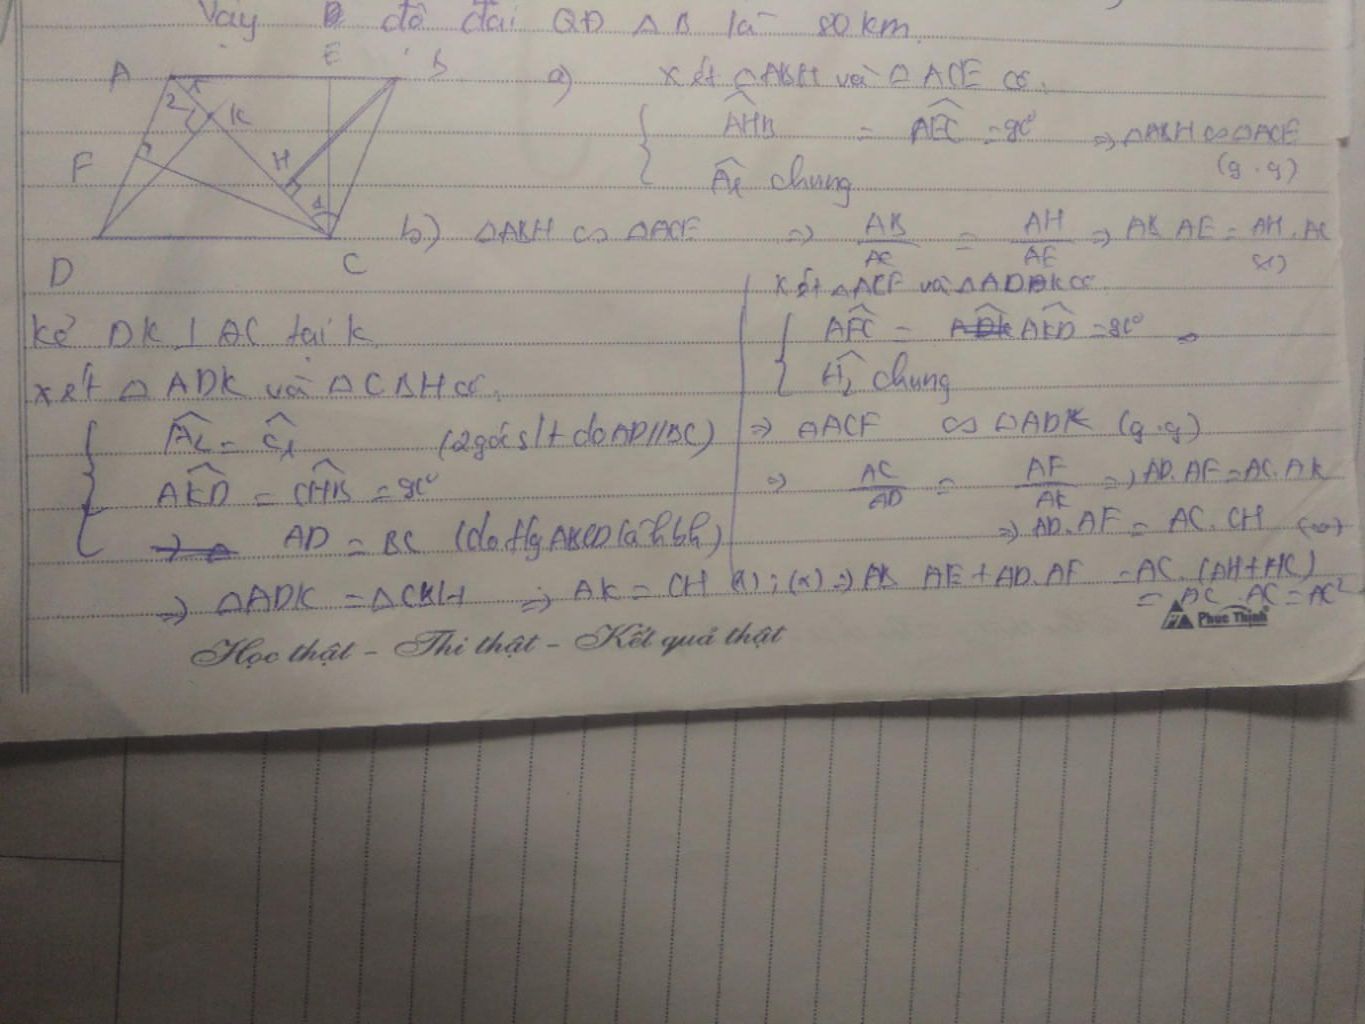 Vậy độ dài QĐ AB là 80km.
A E B
2 1 K
F H
1
D C
a) xét △ABH và △ACE có.
AHB = AEC = 90° => △ABH ∽ △ACE
(g.g)
A1 chung
b) △ABH ∽ △ACE => AB/AC = AH/AE => AB AE = AH.AC
(1)
kẻ DK ⊥ AC tại K
xét △ ADK và △ CBH có.
A2 = C1 (2góc slt do AD//BC)
AKD = CHB = 90°
AD = BC (do tg ABCD là hbh)
=> △ADK = △CBH => AK = CH
xét △ACF và △ADK có
AFC = AKD = 90°
A2 chung
=> △ACF ∽ △ADK (g.g)
=> AC/AD = AF/AK => AD.AF = AC.AK
=> AD.AF = AC.CH
=> AB AE + AD.AF = AC.(AH+HC)
= AC.AC = AC²
Học thật - Thi thật - Kết quả thật
Phúc Thịnh